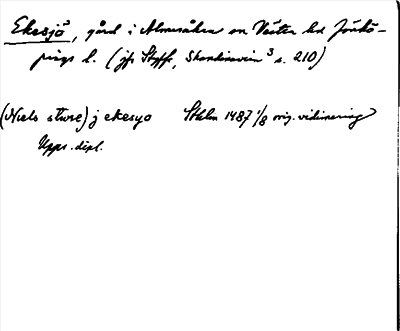 Ekesjö³, gård i Almesåkra sn Västra hd Jönkö-
pings l. (jfr Styffe, Skandinavien³ s. 210)
(Niels sture) j ekesyo Sthlm 1487 1/8 orig. vidimering
Upps. dipl.